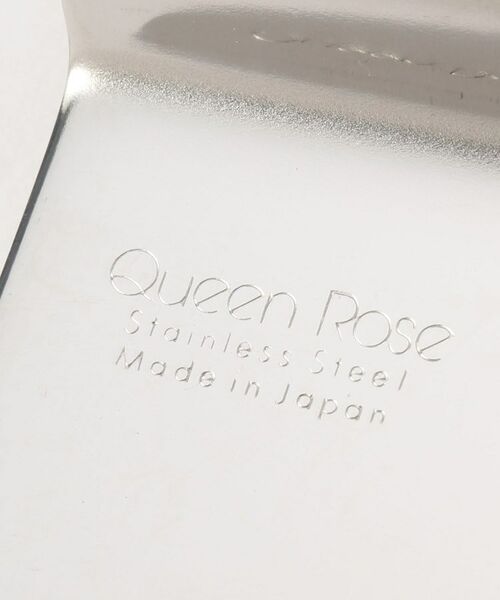 Queen Rose
Stainless Steel
Made in Japan